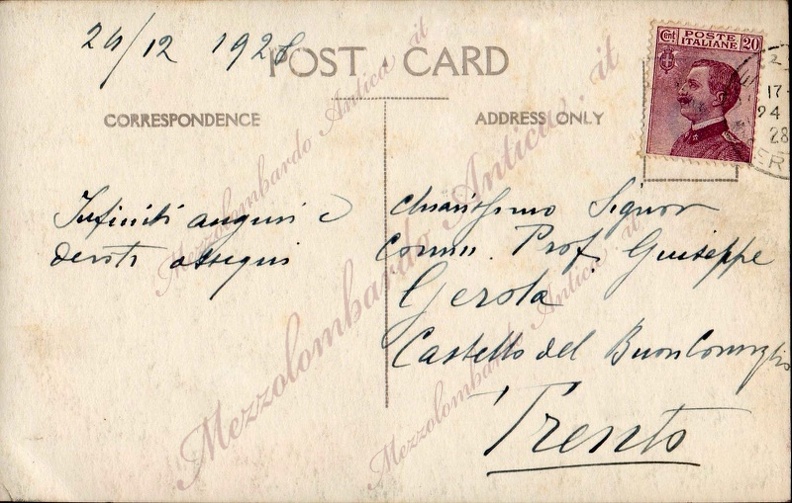 24/12 1928
POST CARD
CORRESPONDENCE
ADDRESS ONLY
Cent POSTE ITALIANE 20
17-
24
28
Infiniti auguri e
devoti ossequi
Chiarissimo Signor
Comm. Prof. Giuseppe
Gerola
Castello del Buon Consiglio
Trento
Mezzolombardo Antica.it
Mezzolombardo Antica.it
Mezzolombardo Antica.it